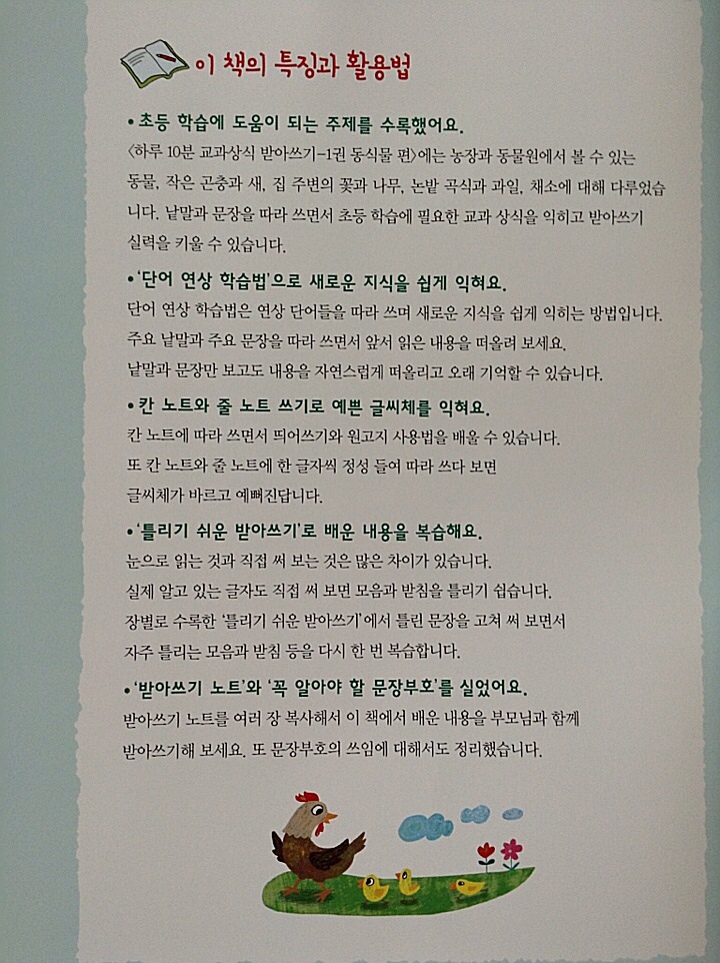 이 책의 특징과 활용법
• 초등 학습에 도움이 되는 주제를 수록했어요.
〈하루 10분 교과상식 받아쓰기-1권 동식물 편〉에는 농장과 동물원에서 볼 수 있는
동물, 작은 곤충과 새, 집 주변의 꽃과 나무, 논밭 곡식과 과일, 채소에 대해 다루었습
니다. 낱말과 문장을 따라 쓰면서 초등 학습에 필요한 교과 상식을 익히고 받아쓰기
실력을 키울 수 있습니다.
• '단어 연상 학습법'으로 새로운 지식을 쉽게 익혀요.
단어 연상 학습법은 연상 단어들을 따라 쓰며 새로운 지식을 쉽게 익히는 방법입니다.
주요 낱말과 주요 문장을 따라 쓰면서 앞서 읽은 내용을 떠올려 보세요.
낱말과 문장만 보고도 내용을 자연스럽게 떠올리고 오래 기억할 수 있습니다.
• 칸 노트와 줄 노트 쓰기로 예쁜 글씨체를 익혀요.
칸 노트에 따라 쓰면서 띄어쓰기와 원고지 사용법을 배울 수 있습니다.
또 칸 노트와 줄 노트에 한 글자씩 정성 들여 따라 쓰다 보면
글씨체가 바르고 예뻐진답니다.
• '틀리기 쉬운 받아쓰기'로 배운 내용을 복습해요.
눈으로 읽는 것과 직접 써 보는 것은 많은 차이가 있습니다.
실제 알고 있는 글자도 직접 써 보면 모음과 받침을 틀리기 쉽습니다.
장별로 수록한 '틀리기 쉬운 받아쓰기'에서 틀린 문장을 고쳐 써 보면서
자주 틀리는 모음과 받침 등을 다시 한 번 복습합니다.
• '받아쓰기 노트'와 '꼭 알아야 할 문장부호'를 실었어요.
받아쓰기 노트를 여러 장 복사해서 이 책에서 배운 내용을 부모님과 함께
받아쓰기해 보세요. 또 문장부호의 쓰임에 대해서도 정리했습니다.